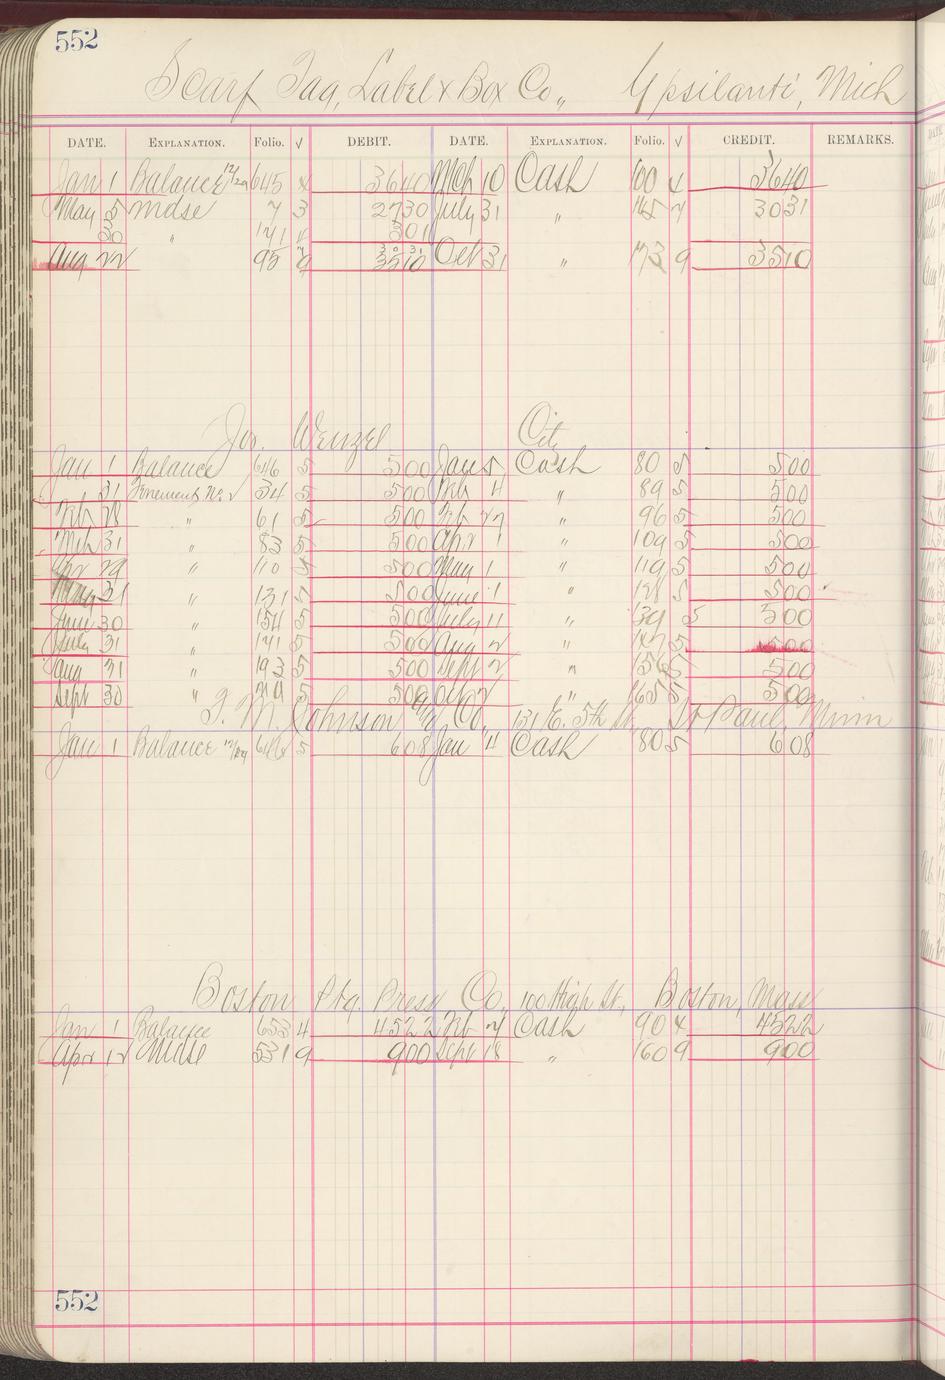 552
Scarf Tag, Label & Box Co., Ypsilanti, Mich
DATE. EXPLANATION. Folio. √ DEBIT. DATE. EXPLANATION. Folio. √ CREDIT. REMARKS.
Jan 1 Balance 12/29 645 4 3640 Mch 10 Cash 100 4 3640
May 5 Mdse 7 3 2730 July 31 " 3031
30 " 171 4 301
3031
Aug 22 95 9 3510 Oct 31 " 173 9 3510
Jos. Wenzel City
Jan 1 Balance 646 5 500 Jan 5 Cash 80 5 500
31 Tenement No. 2 34 5 500 Feb 4 " 89 5 500
Feb 28 " 61 5 500 Feb 27 " 96 5 500
Mch 31 " 83 5 500 Apr 1 " 109 5 500
Apr 29 " 110 5 500 May 1 " 119 5 500
May 31 " 131 500 June 1 " 5 500
June 30 " 154 5 500 July 11 " 139 5 500
July 31 " 171 5 500 Aug 2 " 147 5 500
Aug 31 " 193 5 500 Sept 2 " 156 5 500
Sept 30 " 5 500 Oct 2 " 165 5 500
F. M. Johnson & Co, 131 E. 5th St. St Paul, Minn
Jan 1 Balance 12/29 646 5 608 Jan 4 Cash 80 5 608
Boston Ptg. Press Co., 100 High St., Boston, Mass
Jan 1 Balance 653 4 4522 Feb 7 Cash 90 4 4522
Apr 12 Mdse 551 9 900 Sept 18 " 160 9 900
552